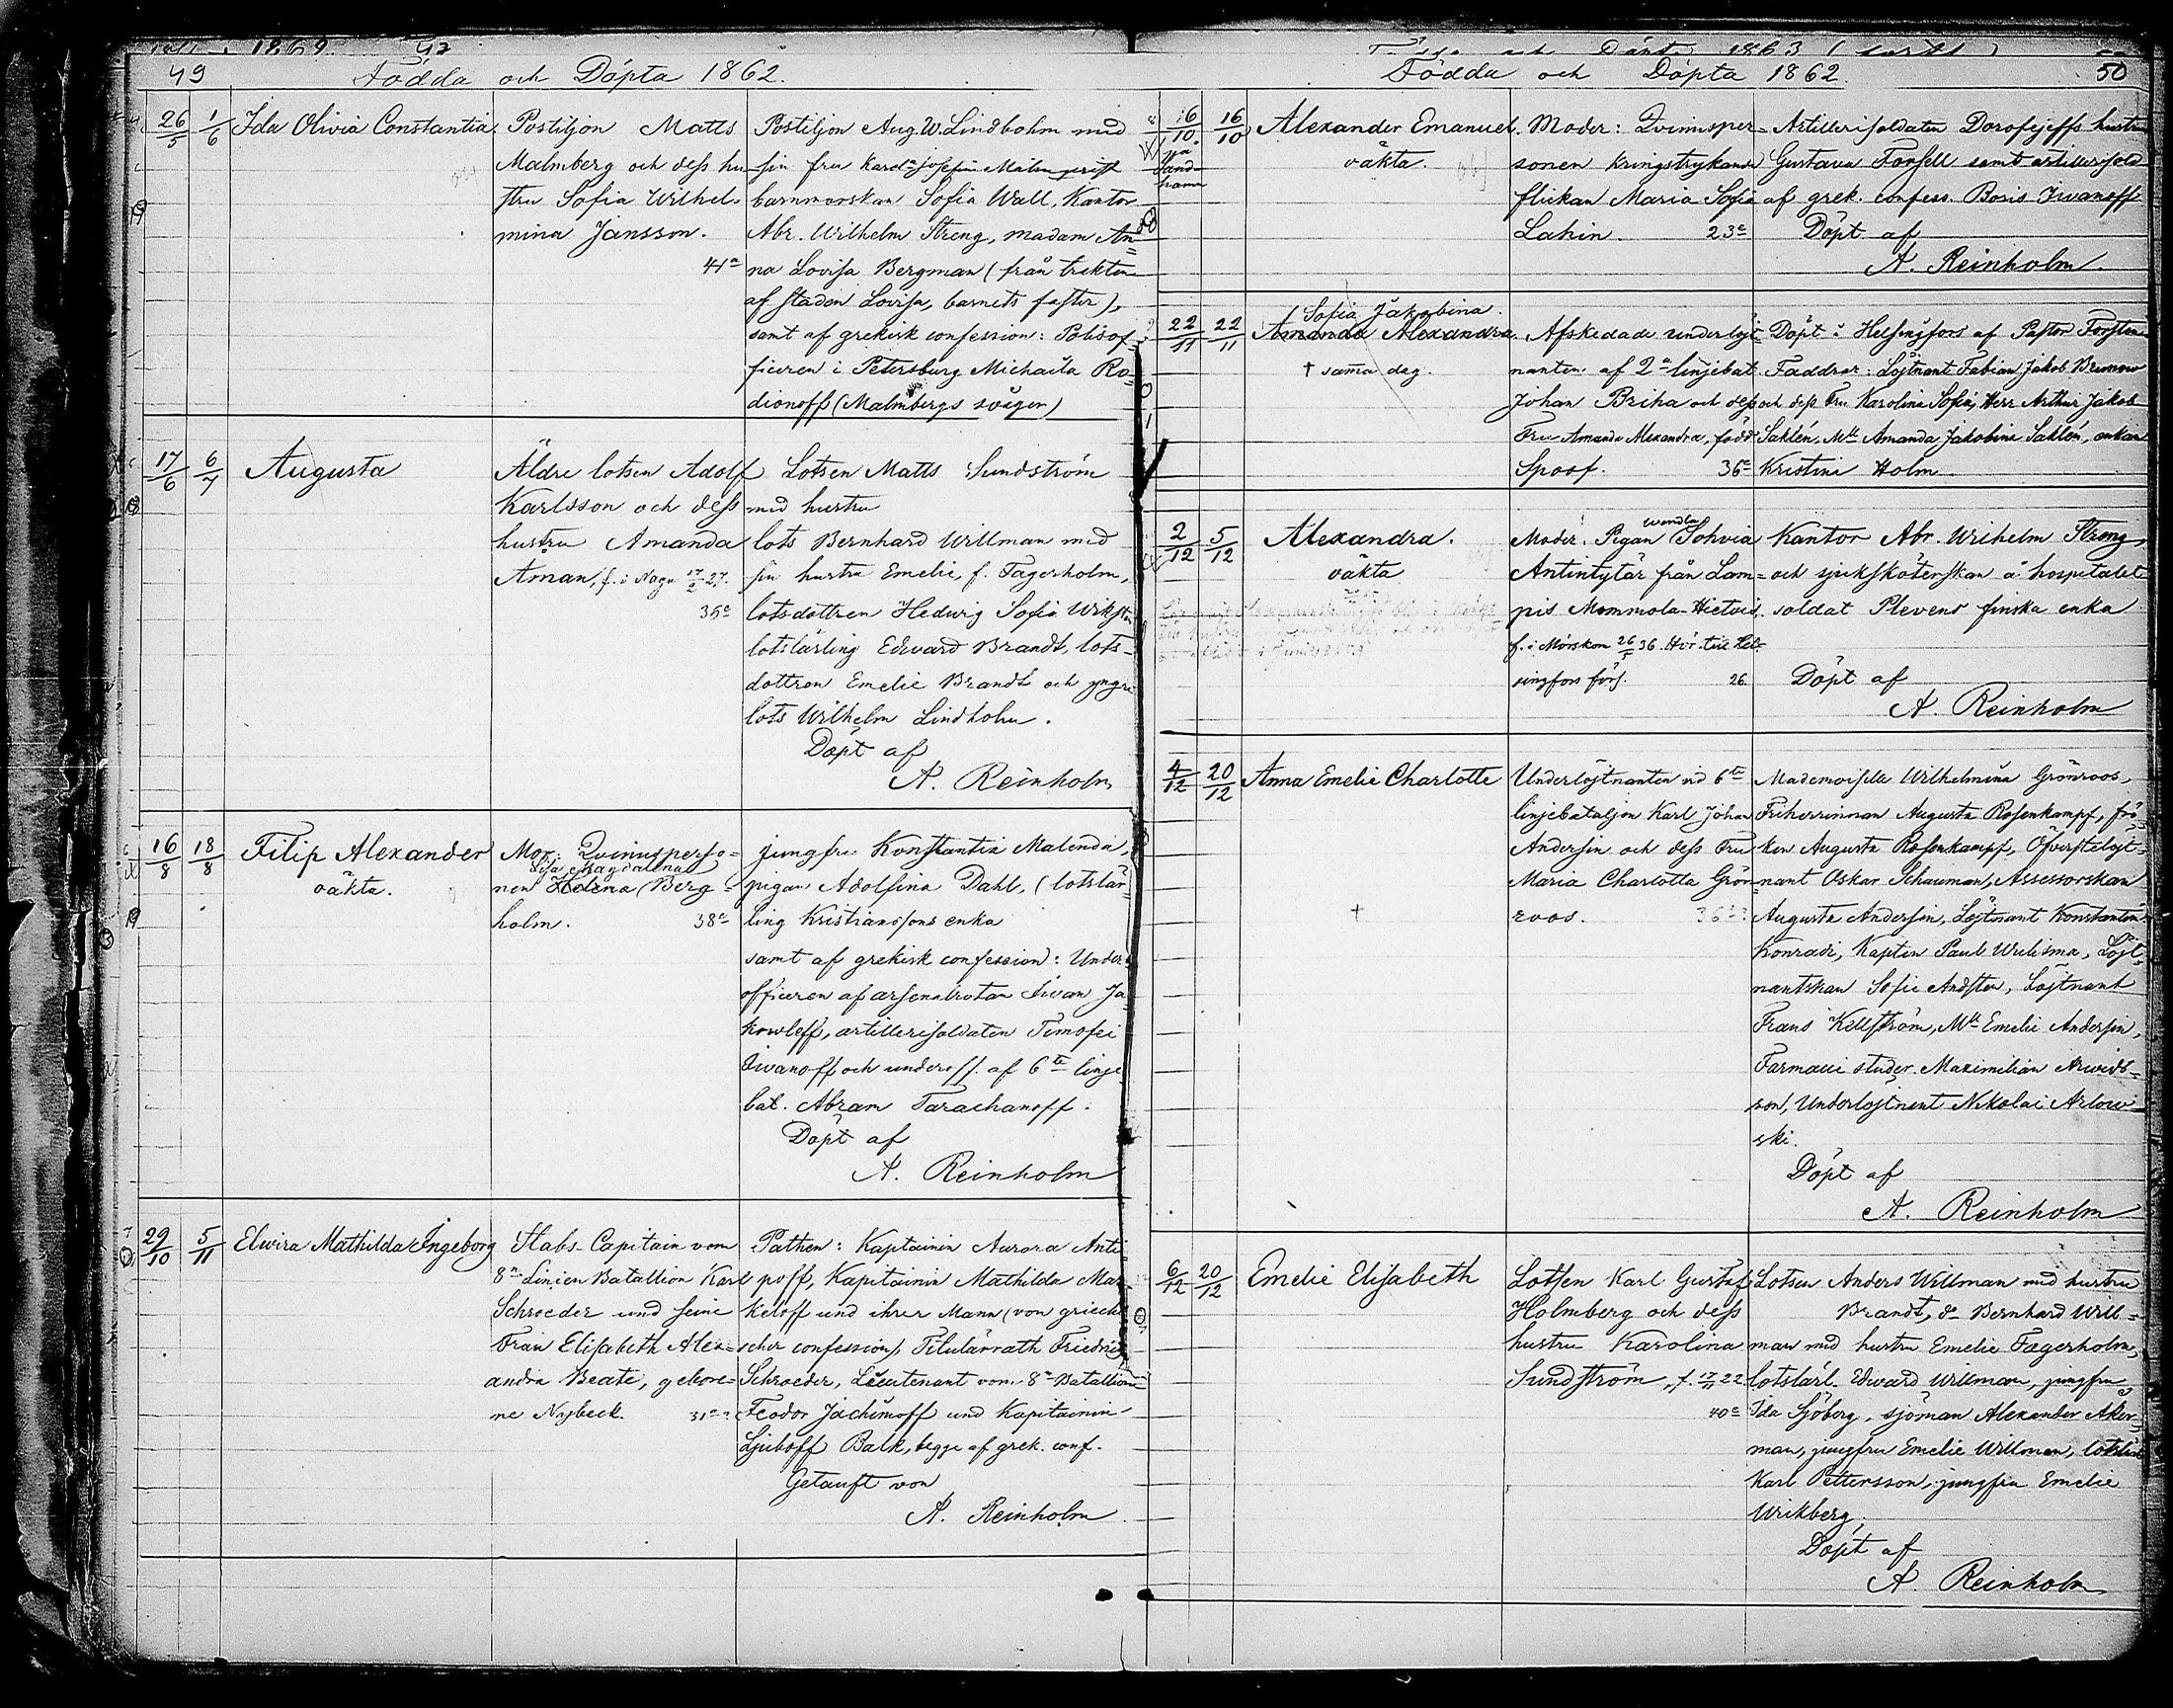 49
Födda och Döpta 1862.
26/5 1/6 Ida Olivia Constantia.
Postiljon Matts
Malmberg och dess hu-
stru Sofia Wilhel-
mina Jansson.
41a
Postiljon Aug. W. Lindbohm med
sin fru Karol. Josefin Malmqvist
barnmorskan Sofia Wall, Kantor
Abr. Wilhelm Streng, madam An-
na Lovisa Bergman (från trakten
af staden Lovisa, barnets faster),
samt af grekisk confession: Polisof-
ficeren i Petersburg Michaila Ro-
dionoff (Malmbergs svåger)
17/6 6/7 Augusta
Äldre lotsen Adolf
Karlsson och dess
hustru Amanda
Åman, f. i Nagu 17/2 27.
35a
Lotsen Matts Sundström
med hustru
lots Bernhard Willman med
sin hustru Emelie, f. Fagerholm,
lotsdottren Hedwig Sofia Wikstr
lotslärling Edward Brandt, lots-
dottren Emelie Brandt och yngre
lots Wilhelm Lindholm.
Döpt af
A. Reinholm
16/8 18/8 Filip Alexander
oäkta.
Mor: Qvinnsperso-
Lisa Magdalena
nen Helena Berg-
holm. 38a
jungfru Konstantia Malenda,
pigan Adolfina Dahl, (lotslär-
ling Kristianssons enka
samt af grekisk confession: Under-
officeren af arsenalrotan Iwan Ja-
kowleff, artillerisoldaten Timofei
Iwanoff och underoff. af 6te linje
bat. Abram Tarachanoff.
Döpt af
A. Reinholm
29/10 5/11 Elwira Mathilda Ingeborg
Stabs-Capitain vom
8n Linien Batallion Karl
Schroeder und seine
Frau Elisabeth Alex-
andra Beate, gebore-
ne Nybeck. 31a
Pathen: Kaptainin Aurora Anti-
poff, Kapitainin Mathilda Mar-
keloff und ihrer Mann (von griechi
scher confession), Titulärrath Friedrich
Schroeder, Lieutenant vom 8n Batallion
Feodor Jachimoff und Kapitainin
Ljuboff Balk, begge af grek. conf.
Getauft von
A. Reinholm
Födda och Döpta 1862.
50
16/10 16/10 Alexander Emanuel.
på
Sand-
hamn
oäkta.
Moder: Qvinnsper-
sonen kringstrykande
flickan Maria Sofia
Lahin. 23a
Artillerisoldaten Dorofejeffs hustru
Gustava Forsell samt artillerisold
af grek. confess. Boris Iwanoff
Döpt af
A. Reinholm.
Sofia Jakobina.
22/11 22/11 Amanda Alexandra.
† samma dag.
Afskedade underlöjt-
nanten af 2a linjebat.
Johan Briha och dess
Fru Amanda Alexandra, född
Spoof. 36a
Döpt i Helsingfors af Pastor Forsten
Faddrar: Löjtnant Fabian Jakob Brunow
och dess Fru Karolina Sofia, Herr Arthur Jakob
Sahlén, Mll Amanda Jakobina Sahlén, enkan
Kristina Holm
2/12 5/12 Alexandra.
oäkta
wendla
Moder: Pigan Sohvia
Antintytär från Lam-
pis Mommola-Hietois.
f. i Mörskom 26/5 36. Hör till Hel-
singfors förs. 26.
Kantor Abr. Wilhelm Streng,
och sjukskötenskan å hospitalet
soldat Plevens finska enka
Döpt af
A. Reinholm
4/12 20/12 Anna Emelie Charlotte
†
Underlöjtnanten vid 6te
linjebataljon Karl Johan
Andersin och dess Fru
Maria Charlotta Grön-
roos. 36a
Mademoiselle Wilhelmina Grönroos,
Friherrinnan Augusta Rosenkampf, frö-
ken Augusta Rosenkampf, Öfverstelöjt-
nant Oskar Schauman, Assessorskan
Augusta Andersin, Löjtnant Konstantin
Konradi, Kapten Paul Wulisma, Löjt-
nantskan Sofie Andsten, Löjtnant
Frans Kellström, Mll Emelie Andersin,
Farmacie studer. Maximilian Arwids-
son, Underlöjtnant Nikolai Arlow-
ski.
Döpt af
A. Reinholm
6/12 20/12 Emelie Elisabeth
Lotsen Karl Gustaf
Holmberg och dess
hustru Karolina
Sundström, f. 17/11 22
40a
Lotsen Anders Willman med hustru
Brandt, do Bernhard Will-
man med hustru Emelie Fagerholm,
lotslärl. Edward Willman, jungfru
Ida Sjöberg, sjöman Alexander Åker-
man, jungfru Emelie Willman, lotslärl
Karl Pettersson, jungfru Emelie
Wrikberg,
Döpt af
A. Reinholm